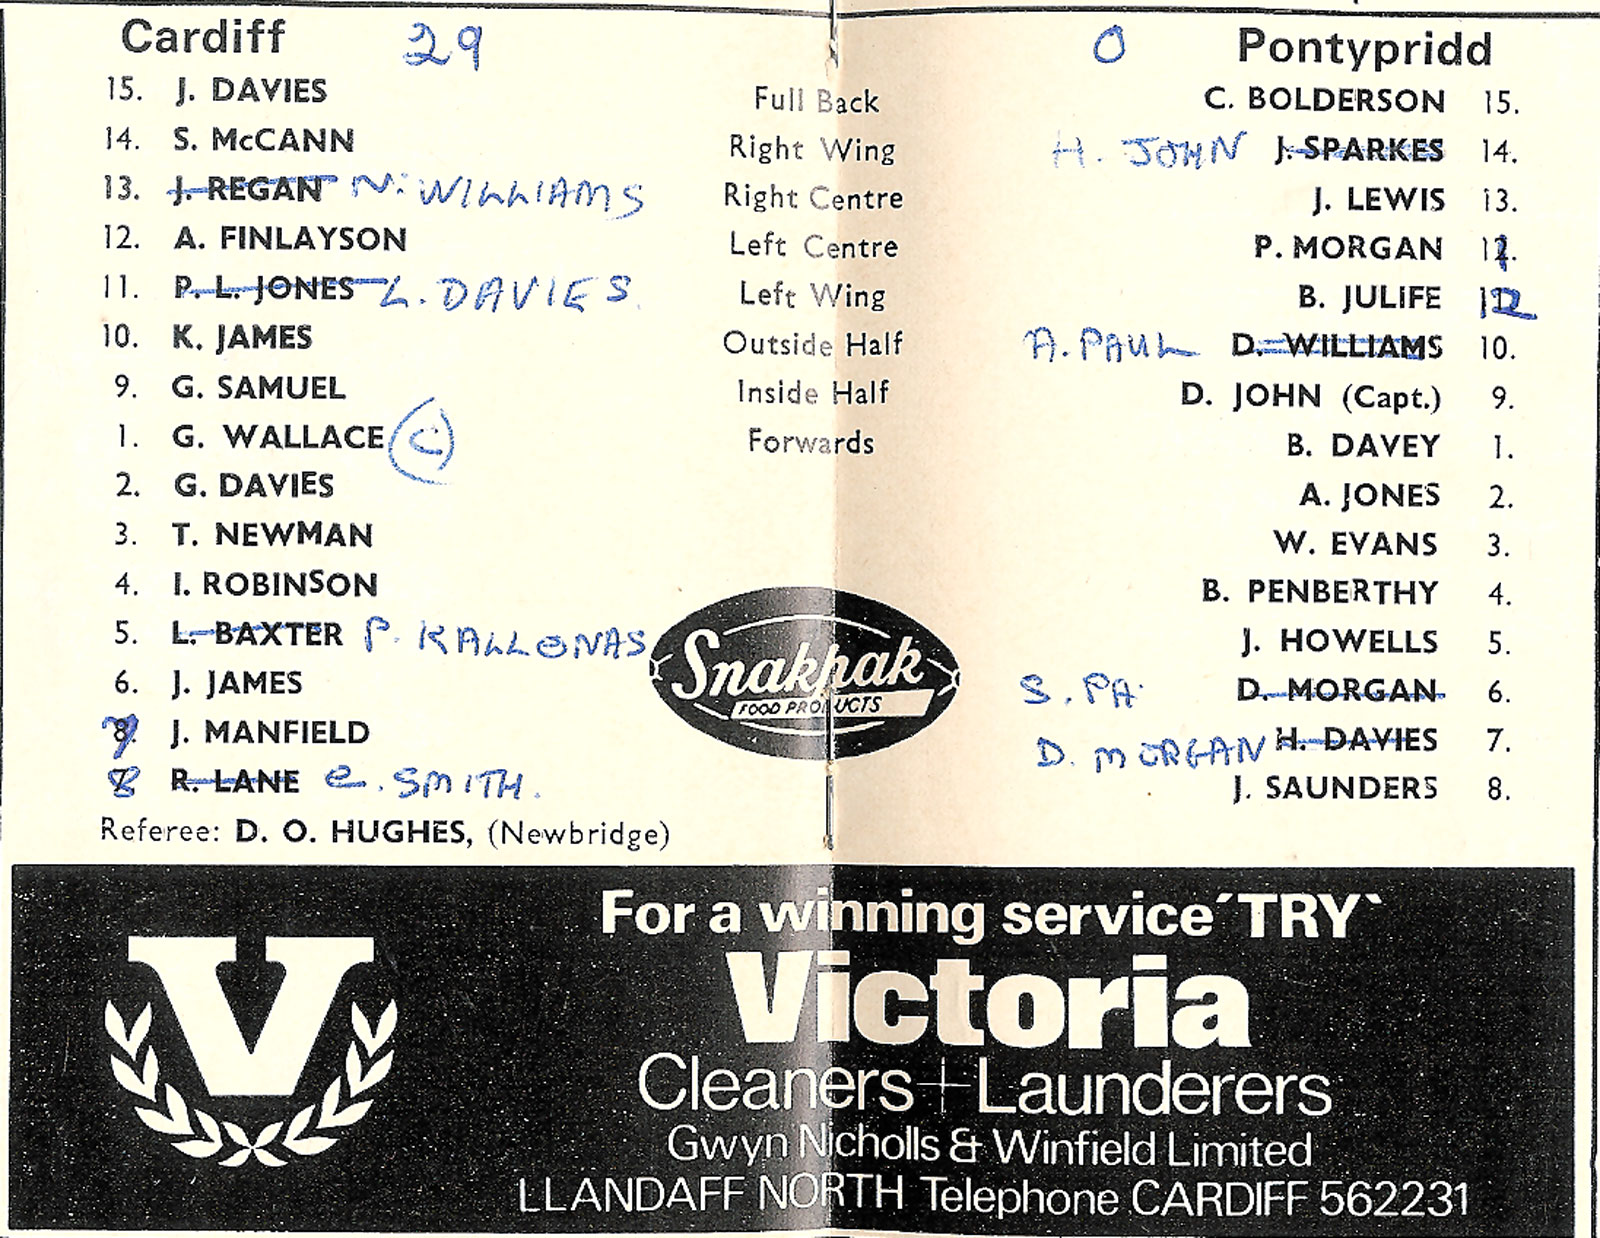 Cardiff 29 0 Pontypridd
15. J. DAVIES Full Back C. BOLDERSON 15.
14. S. McCANN Right Wing H. JOHN J. SPARKES 14.
13. J. REGAN N. WILLIAMS Right Centre J. LEWIS 13.
12. A. FINLAYSON Left Centre P. MORGAN 11.
11. P. L. JONES L. DAVIES Left Wing B. JULIFE 12
10. K. JAMES Outside Half A. PAUL D. WILLIAMS 10.
9. G. SAMUEL Inside Half D. JOHN (Capt.) 9.
1. G. WALLACE C Forwards B. DAVEY 1.
2. G. DAVIES A. JONES 2.
3. T. NEWMAN W. EVANS 3.
4. I. ROBINSON B. PENBERTHY 4.
5. L. BAXTER P. KALLONAS J. HOWELLS 5.
6. J. JAMES S. PA. D. MORGAN 6.
7 J. MANFIELD D. MORGAN H. DAVIES 7.
8 R. LANE C. SMITH. J. SAUNDERS 8.
Snakpak
FOOD PRODUCTS
Referee: D. O. HUGHES, (Newbridge)
For a winning service ´TRY`
V Victoria
Cleaners+Launderers
Gwyn Nicholls & Winfield Limited
LLANDAFF NORTH Telephone CARDIFF 562231